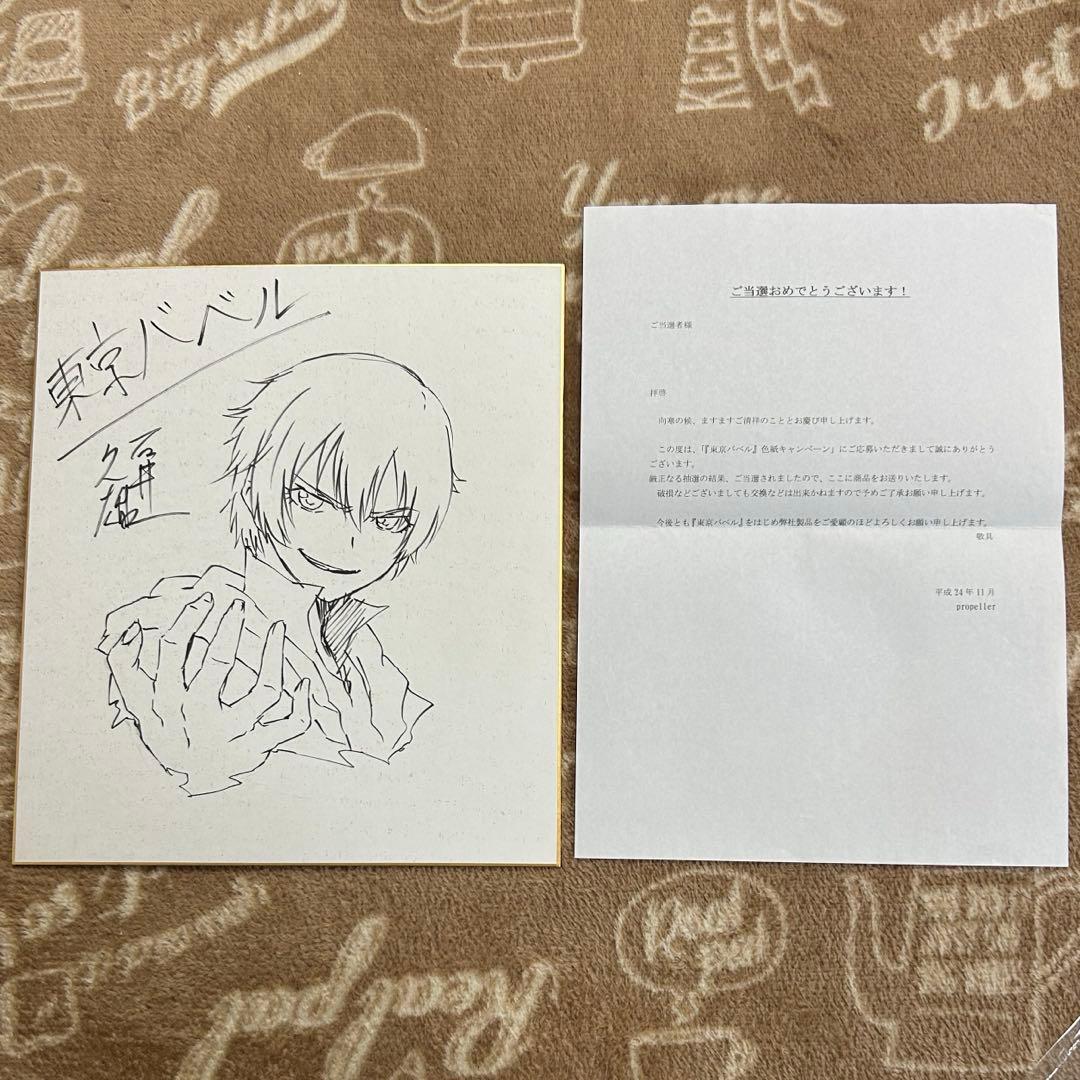 Big
KEEP
you
Just
You are
東京バベル
石井
久雄
ご当選おめでとうございます！
ご当選者様
拝啓
向寒の候、ますますご清祥のこととお慶び申し上げます。
この度は、「『東京バベル』色紙キャンペーン」にご応募いただきまして誠にありがとう
ございます。
厳正なる抽選の結果、ご当選されましたので、ここに商品をお送りいたします。
破損などございましても交換などは出来かねますので予めご了承お願い申し上げます。
今後とも『東京バベル』をはじめ弊社製品をご愛顧のほどよろしくお願い申し上げます。
敬具
平成24年11月
propeller
Real pal